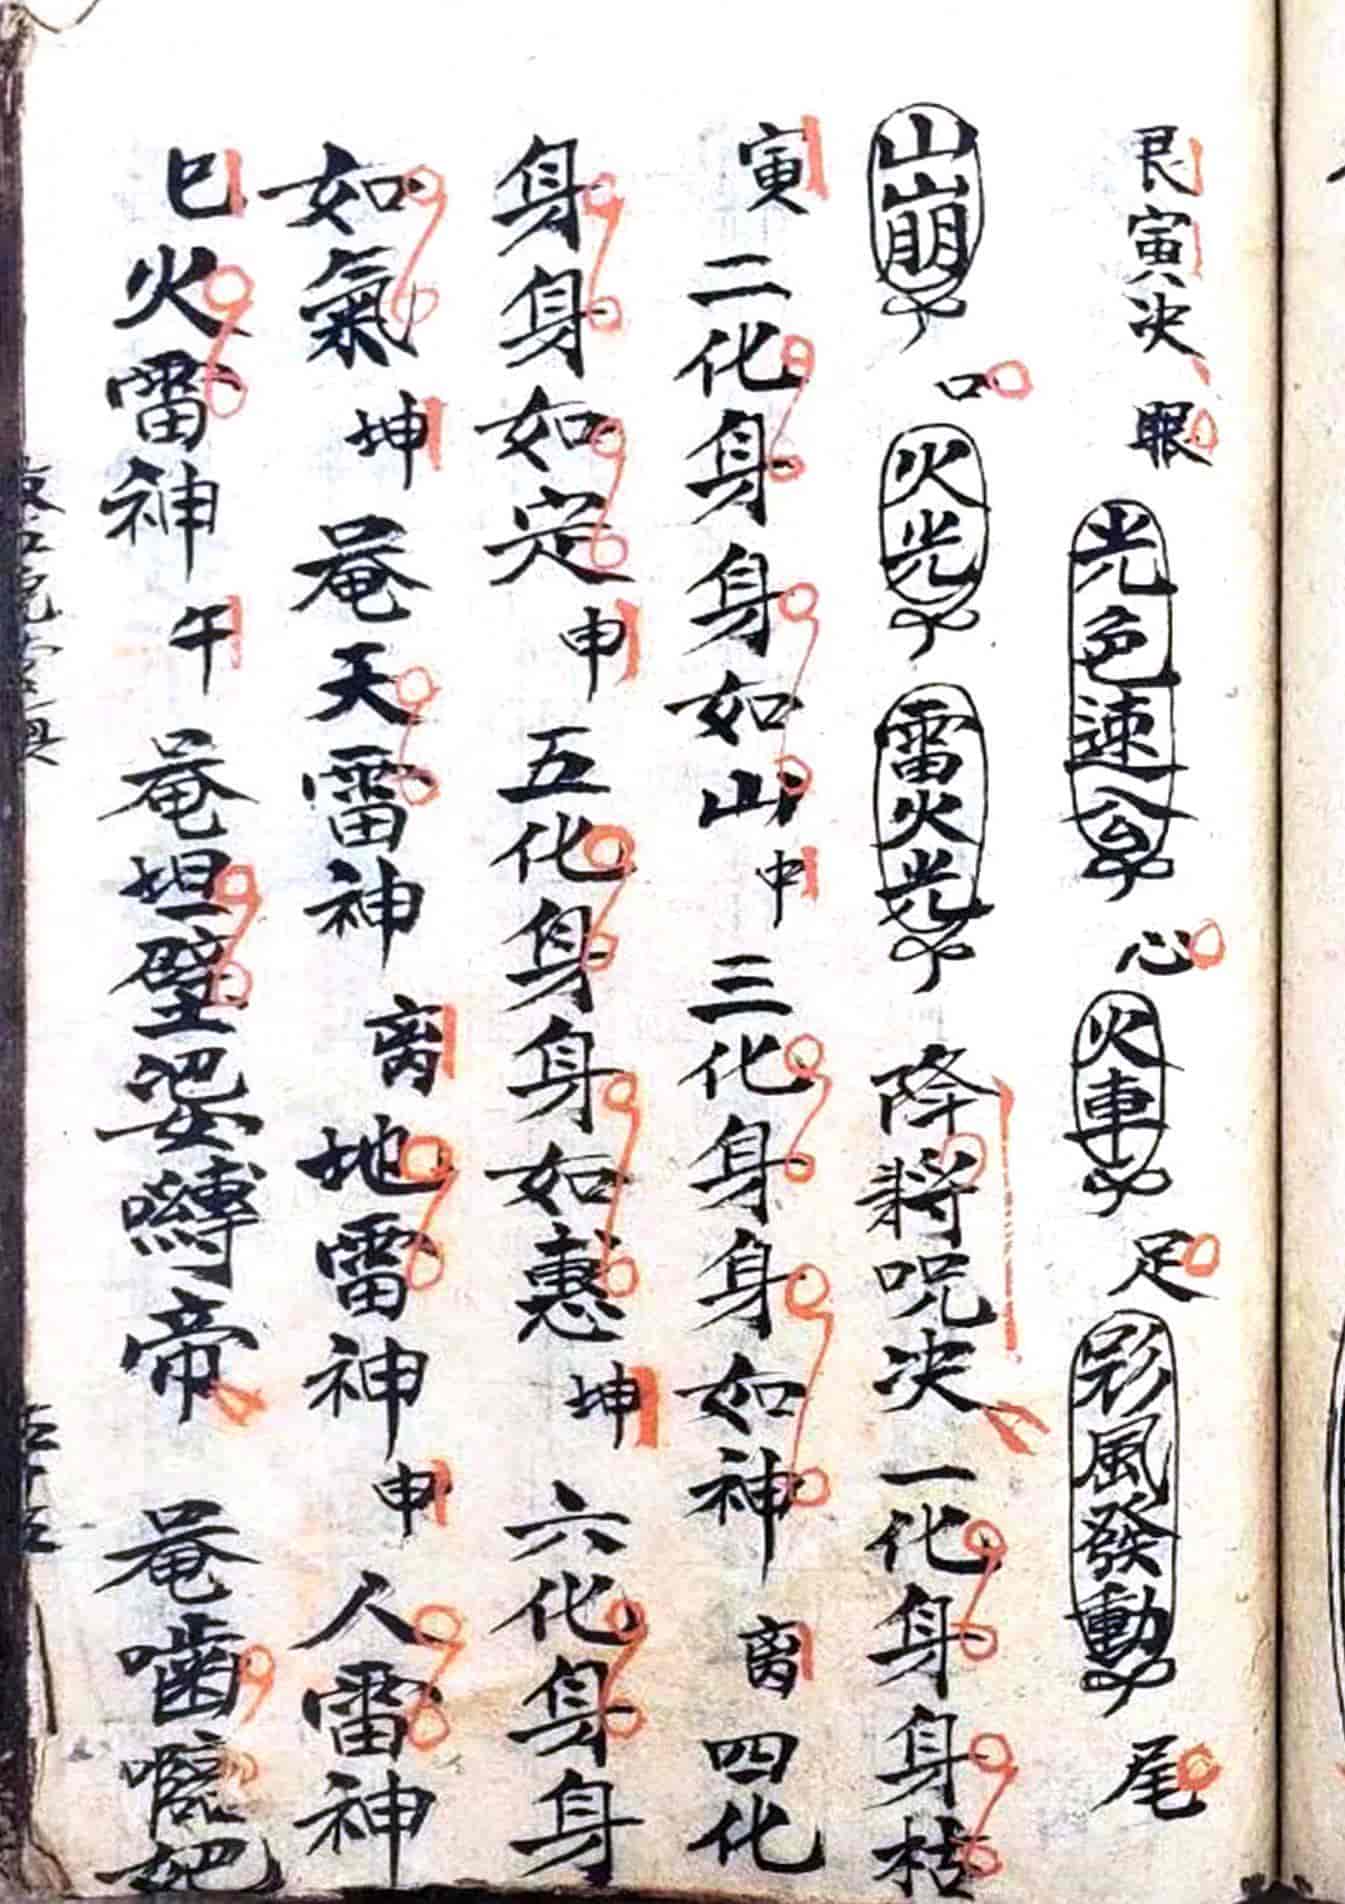 艮寅决 眼 光色速 心 火車 足 影風發動 尾
山崩 口 火光 雷火光 降將咒决 一化身身枯
寅 二化身身如山 中 三化身身如神 离 四化
身身如定 申 五化身身如惠 坤 六化身身
如氣 坤 菴天雷神 离 地雷神 申 人雷神
巳 火雷神 午 菴坦壁 嚩帝 菴嚙